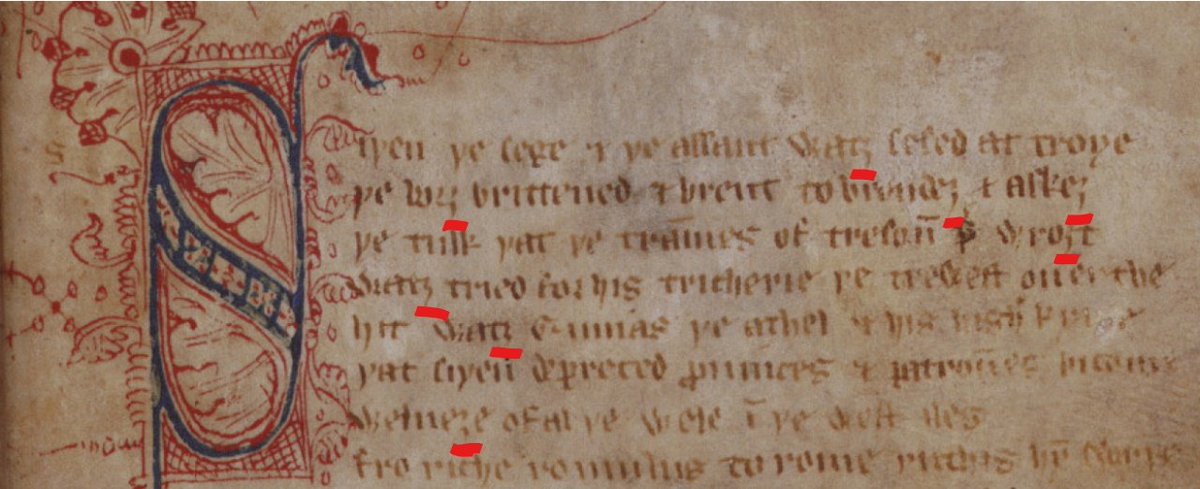 Siþen þe sege & þe assaut watȝ sesed at troye
þe borȝ brittened & brent to brondeȝ & askeȝ
þe tulk þat þe trãmes of tresoũ þ̉ wroȝt
watȝ tried for his tricherie þe trewest on erthe
hit watȝ Ennias þe athel & his highe kynde
þat siþen depreced prouinces & patroũes bicome
welneȝe of al þe wele ĩ þe west iles
fro riche romulus to rome ricchis hỹ swyþe